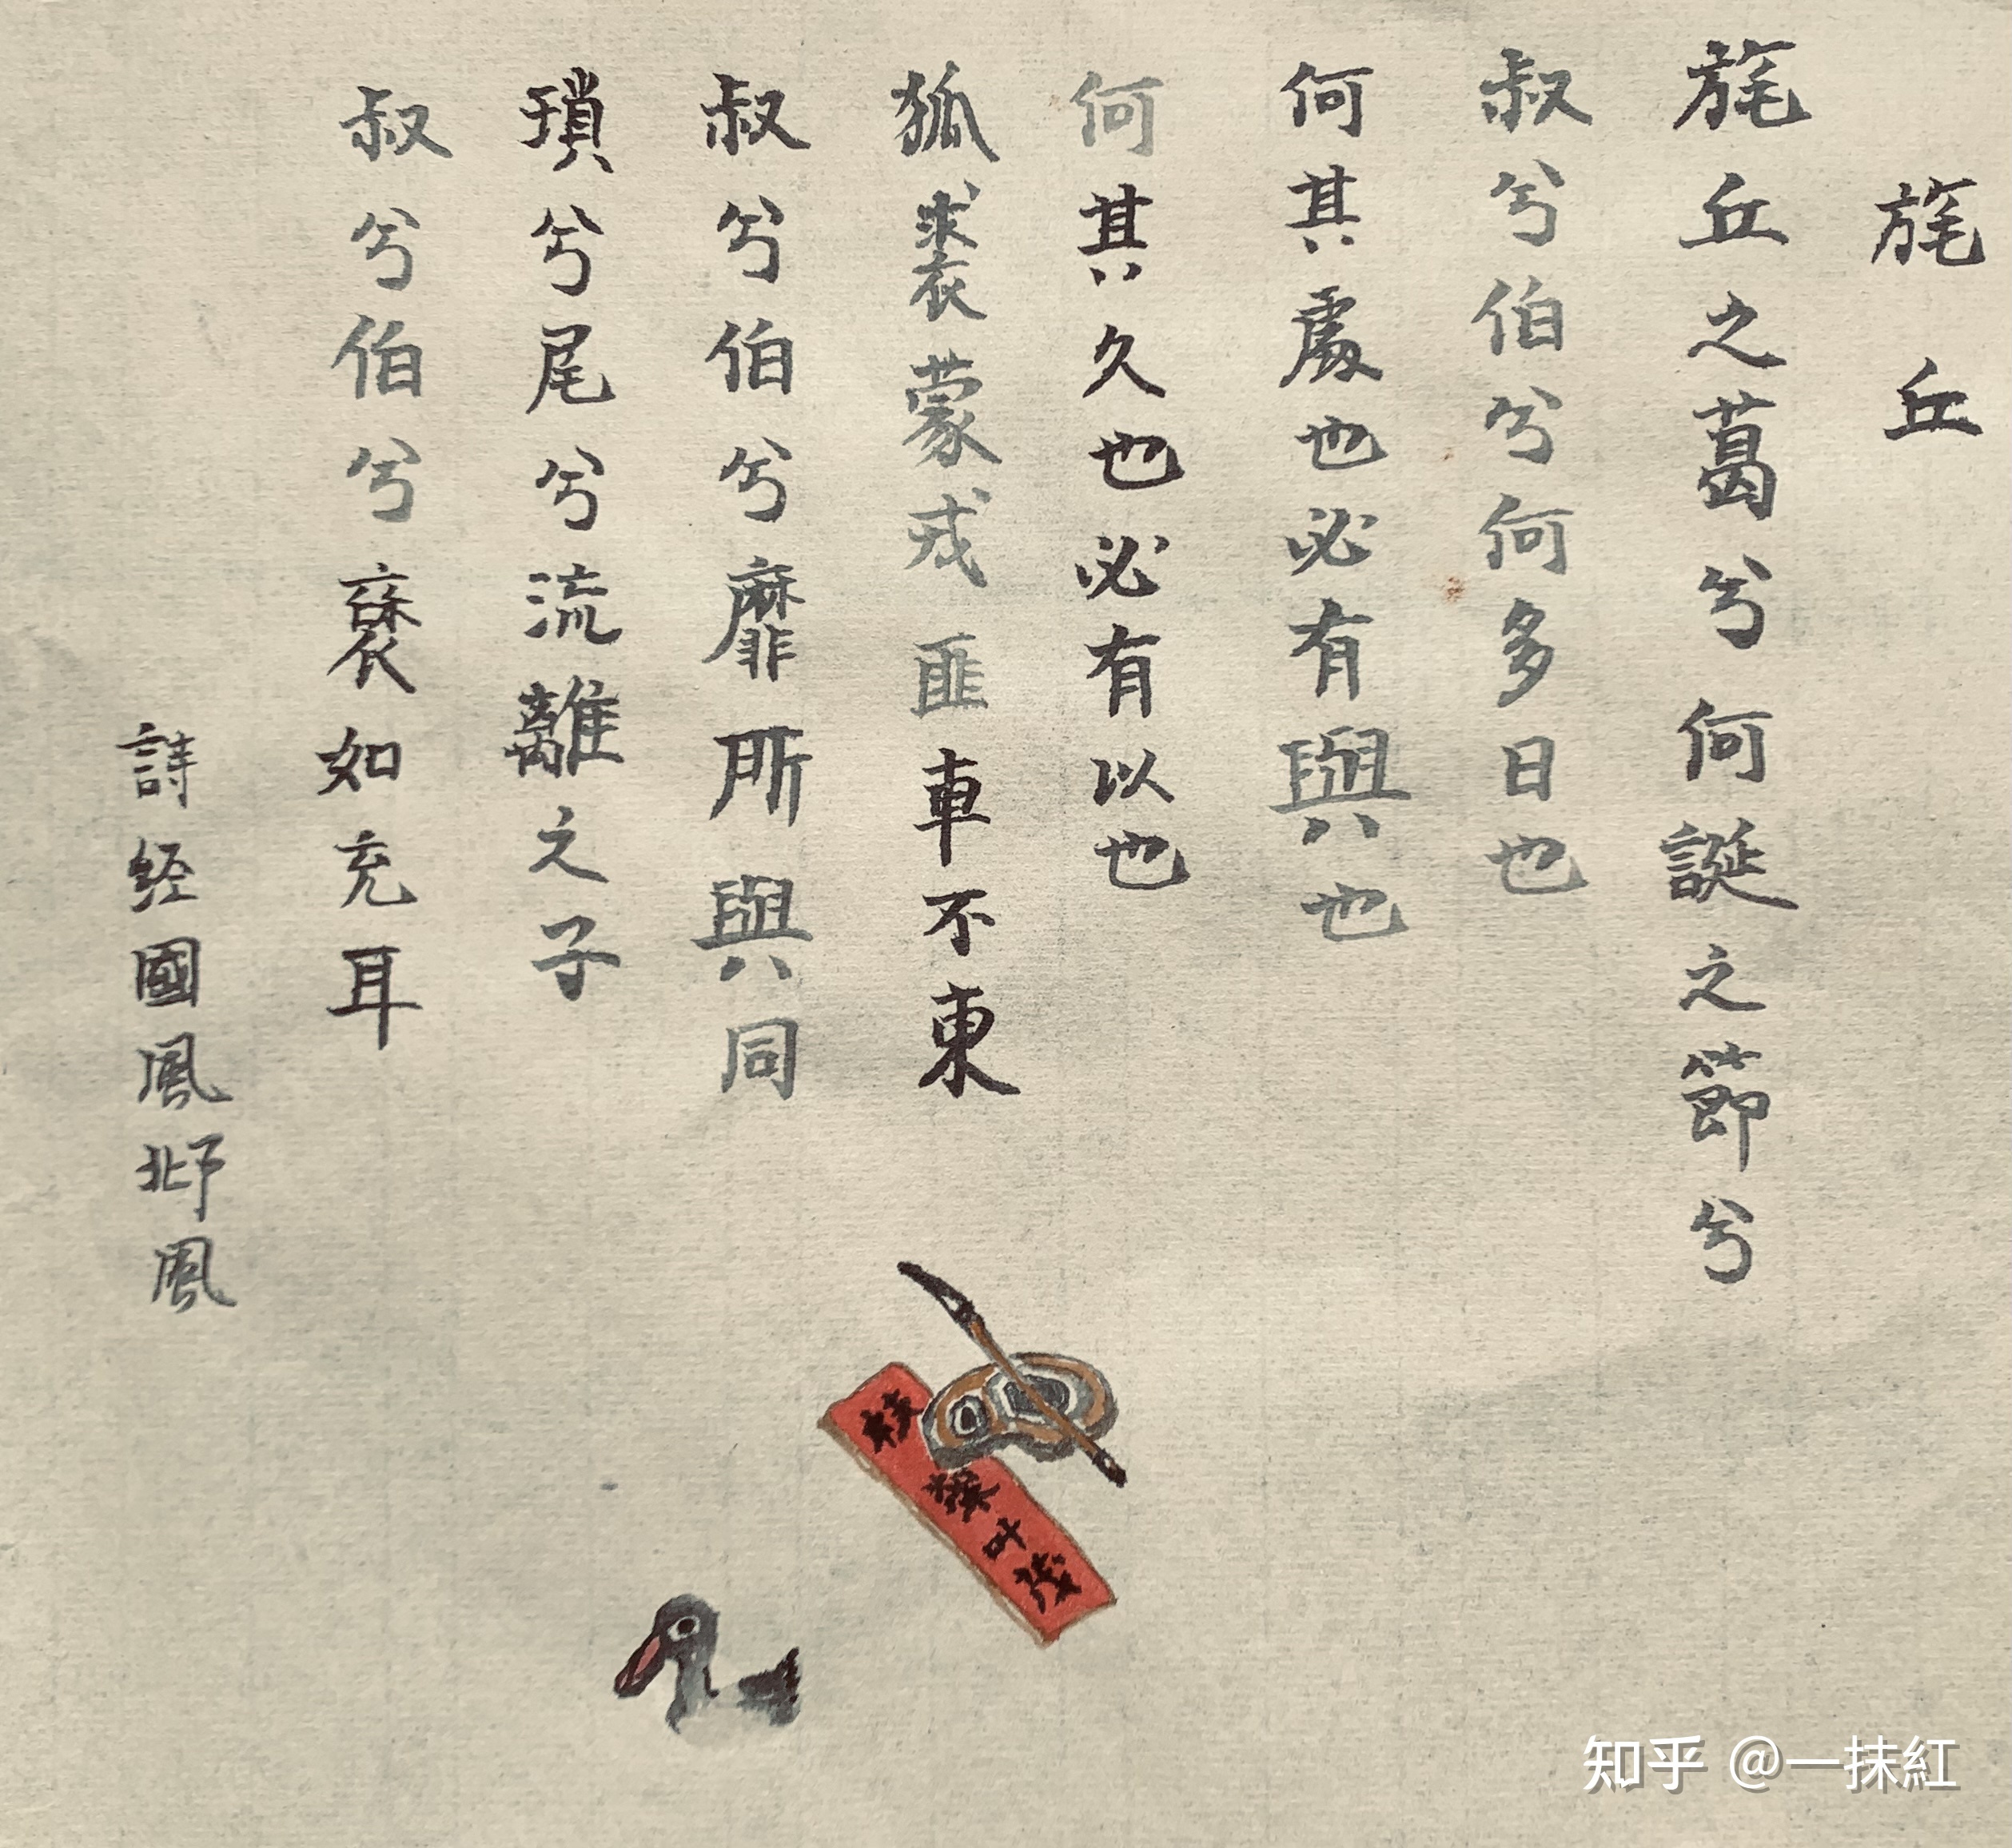 旄丘
旄丘之葛兮何誕之節兮
叔兮伯兮何多日也
何其處也必有與也
何其久也必有以也
狐裘蒙戎匪車不東
叔兮伯兮靡所與同
瑣兮尾兮流離之子
叔兮伯兮褎如充耳
詩経國風邶風
枝葉叶茂
知乎 @一抹紅